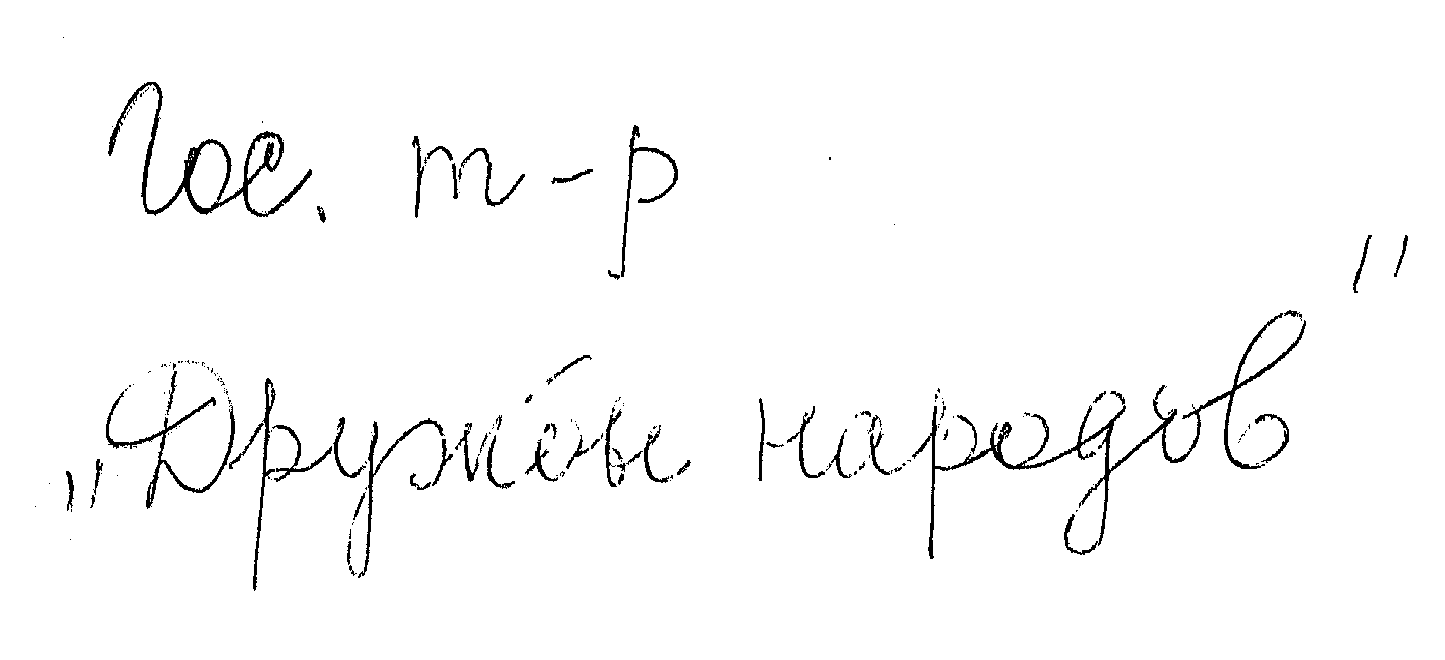 Гос. т-р
„Дружбы народов"